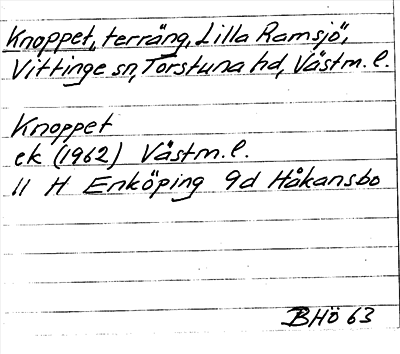 Knoppet, terräng, Lilla Ramsjö,
Vittinge sn, Torstuna hd, Västm. l.
Knoppet
ek (1962) Västm. l.
11 H Enköping 9d Håkansbo
BHö 63